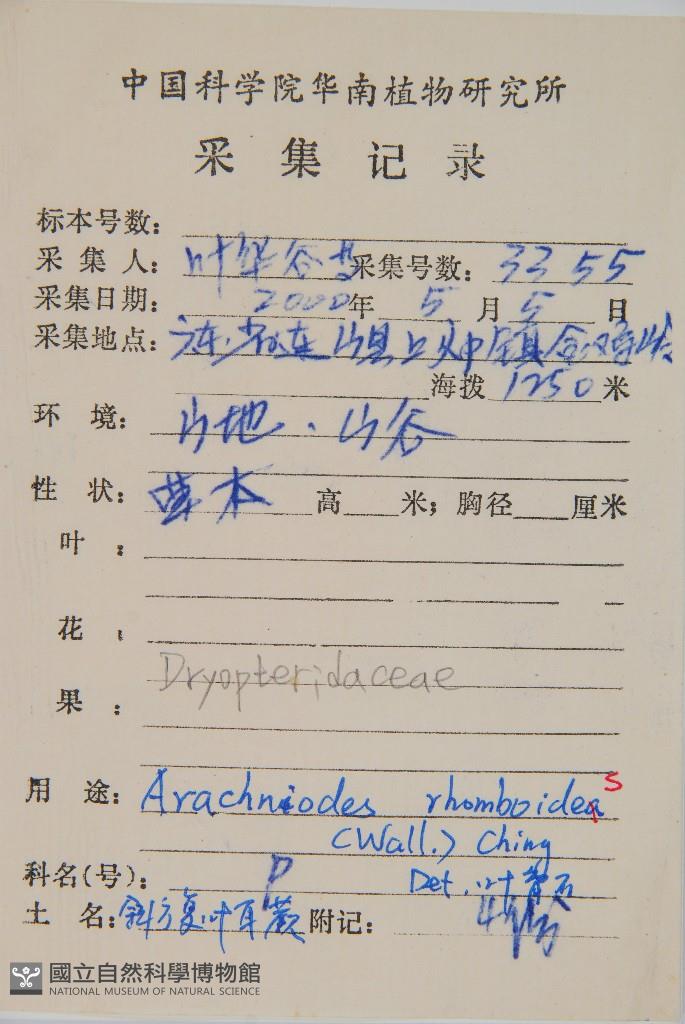 中国科学院华南植物研究所
采集记录
标本号数：
采集人：叶华谷 采集号数：3355
采集日期：2000年5月5日
采集地点：广东 连山县上帅镇
海拨1250米
环境：山地．山谷
性状：草本 高 米；胸径 厘米
叶：
花：
Dryopteridaceae
果：
用途：Arachniodes rhomboidea s
(Wall.) Ching
科名(号)：P Det. 叶
土名：斜方复叶耳蕨 附记：
國立自然科學博物館
NATIONAL MUSEUM OF NATURAL SCIENCE